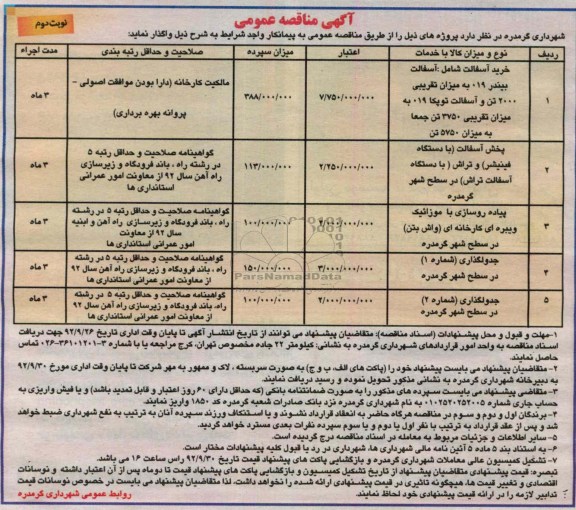 آگهی مناقصه عمومی
نوبت دوم
شهرداری گرمدره در نظر دارد پروژه های ذیل را از طریق مناقصه عمومی به پیمانکار واجد شرایط به شرح ذیل واگذار نماید:
ردیف نوع و میزان کالا یا خدمات اعتبار میزان سپرده صلاحیت و حداقل رتبه بندی مدت اجراء
۱ خرید آسفالت شامل :آسفالت بیندر ۰۱۹ به میزان تقریبی ۲۰۰۰ تن و آسفالت توپکا ۰۱۹ به میزان تقریبی ۳۷۵۰ تن جمعا به میزان ۵۷۵۰ تن ۷/۷۵۰/۰۰۰/۰۰۰ ۳۸۸/۰۰۰/۰۰۰ مالکیت کارخانه (دارا بودن موافقت اصولی – پروانه بهره برداری) ۳ ماه
۲ پخش آسفالت (با دستگاه فینیشر) و تراش ( با دستگاه آسفالت تراش) در سطح شهر گرمدره ۲/۲۵۰/۰۰۰/۰۰۰ ۱۱۳/۰۰۰/۰۰۰ گواهینامه صلاحیت و حداقل رتبه ۵ در رشته راه ، باند فرودگاه و زیرسازی راه آهن سال ۹۲ از معاونت امور عمرانی استانداری ها ۳ ماه
۳ پیاده روسازی با موزائیک ویبره ای کارخانه ای (واش بتن) در سطح شهر گرمدره ۱۰۰/۰۰۰/۰۰۰ گواهینامه صلاحیت و حداقل رتبه ۵ در رشته راه ، باند فرودگاه و زیرسازی راه آهن و ابنیه سال ۹۲ از معاونت امور عمرانی استانداری ها ۳ ماه
۴ جدولگذاری (شماره ۱) در سطح شهر گرمدره ۳/۰۰۰/۰۰۰/۰۰۰ ۱۵۰/۰۰۰/۰۰۰ گواهینامه صلاحیت و حداقل رتبه ۵ در رشته راه ، باند فرودگاه و زیرسازی راه آهن سال ۹۲ از معاونت امور عمرانی استانداری ها ۳ ماه
۵ جدولگذاری (شماره ۲) در سطح شهر گرمدره ۲/۰۰۰/۰۰۰/۰۰۰ ۱۰۰/۰۰۰/۰۰۰ گواهینامه صلاحیت و حداقل رتبه ۵ در رشته راه ، باند فرودگاه و زیرسازی راه آهن سال ۹۲ از معاونت امور عمرانی استانداری ها ۳ ماه
ParsNamadData
۱-مهلت و قبول و محل پیشنهادات (اسناد مناقصه): متقاضیان پیشنهاد می توانند از تاریخ انتشار آگهی تا پایان وقت اداری تاریخ ۹۲/۹/۲۶ جهت دریافت
اسناد مناقصه به واحد امور قراردادهای شهرداری گرمدره به نشانی: کیلومتر ۲۲ جاده مخصوص تهران، کرج مراجعه یا با شماره ۳-۳۶۱۰۱۲۰۱-۰۲۶ تماس
حاصل نمایند.
۲- متقاضیان پیشنهاد می بایست پیشنهاد خود را (پاکت های الف، ب و ج) به صورت سربسته ، لاک و ممهور به مهر شرکت تا پایان وقت اداری مورخ ۹۲/۹/۳۰
به دبیرخانه شهرداری گرمدره به نشانی مذکور تحویل نموده و رسید دریافت نمایند.
۳- متقاضی پیشنهاد می بایست سپرده های مذکور را به صورت ضمانتنامه بانکی (که حداقل دارای ۶۰ روز اعتبار و قابل تمدید باشد) و یا فیش واریزی به
حساب جاری شماره ۰۱۰۲۵۲۰۲۵۲۰۰۵ به نام شهرداری گرمدره نزد بانک صادرات شعبه گرمدره کد ۱۸۵۰ واریز نمایند.
۴- برندگان اول و دوم و سوم در مناقصه هرگاه حاضر به انعقاد قرارداد نشوند و یا استنکاف ورزند سپرده آنان به ترتیب به نفع شهرداری ضبط خواهد
شد و پس از عقد قرارداد به ترتیب با نفر اول یا دوم و یا سوم سپرده نفرات بعدی مسترد خواهد گردید.
۵- سایر اطلاعات و جزئیات مربوط به معامله در اسناد مناقصه درج گردیده است.
۶- به استناد بند ۵ ماده ۵ آئین نامه مالی شهرداری ها، شهرداری در رد یا قبول کلیه پیشنهادات مختار است.
۷- تشکیل کمیسیون عالی معاملات شهرداری گرمدره و بازگشایی پاکت های پیشنهاد قیمت تاریخ ۹۲/۹/۳۰ راس ساعت ۱۶ می باشد.
تبصره: قیمت پیشنهادی متقاضیان پیشنهاد از تاریخ تشکیل کمیسیون و بازگشایی پاکت های پیشنهاد قیمت تا دوماه پس از آن اعتبار داشته و نوسانات
اقتصادی و تغییر قیمت ها، هیچگونه تاثیری در قیمت پیشنهادی ارائه شده را نخواهد داشت، لذا متقاضیان پیشنهاد می بایست در خصوص نوسانات قیمت
تدابیر لازمه را در ارائه قیمت پیشنهادی خود لحاظ نمایند.
روابط عمومی شهرداری گرمدره